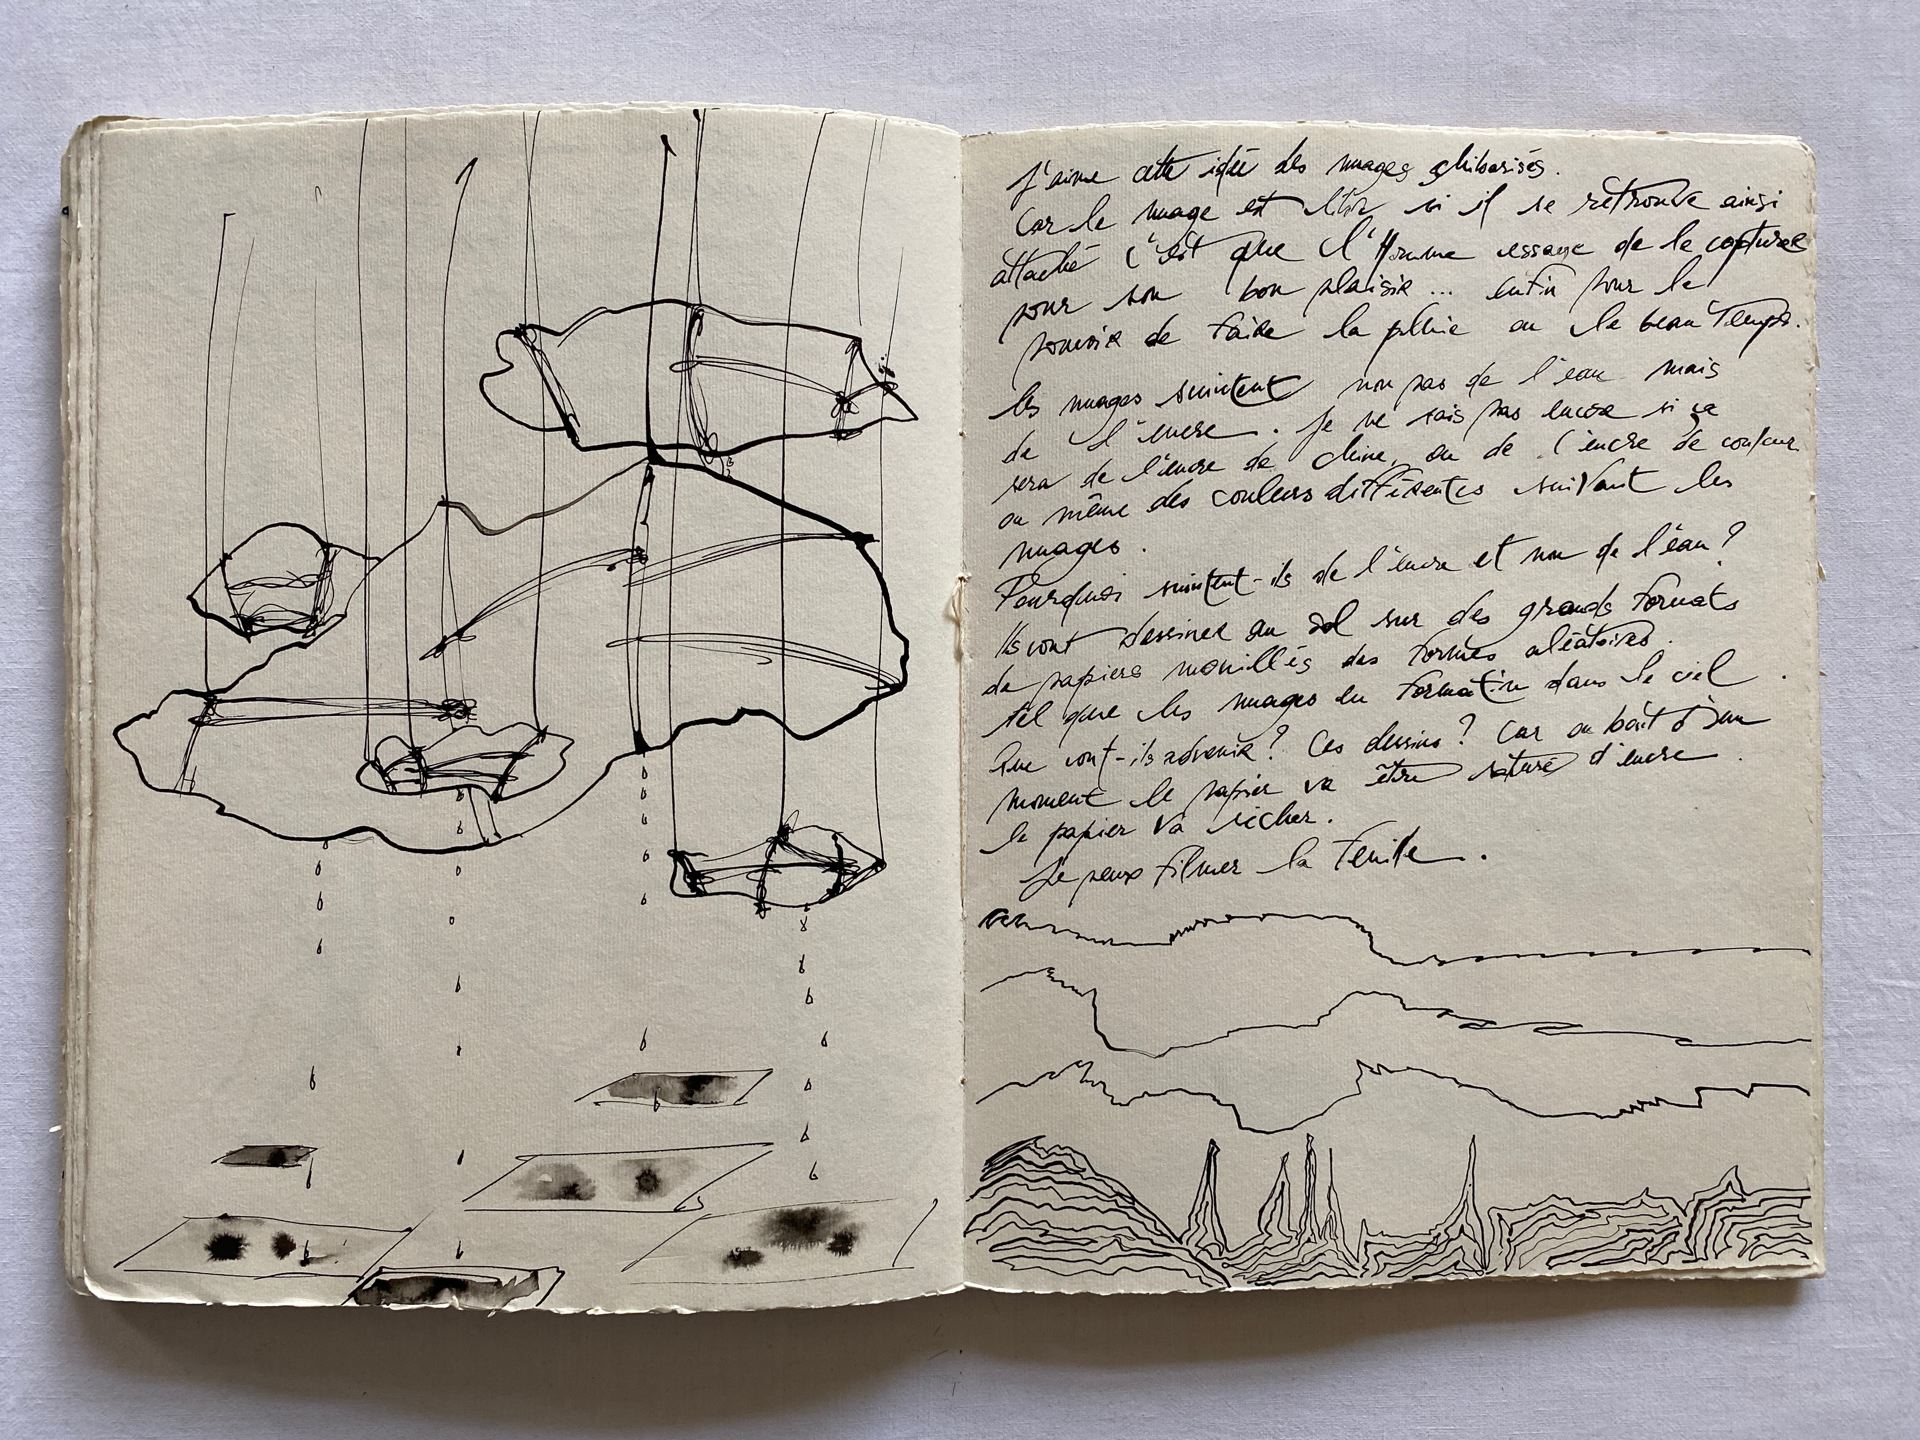 J'aime cette idée des nuages shibarisés.
Car le nuage est libre si il se retrouve ainsi
attaché c'est que l'Homme essaye de le capturer
pour son bon plaisir... enfin pour le
pouvoir de faire la pluie ou le beau Temps.
les nuages suintent non pas de l'eau mais
de l'encre. Je ne sais pas encore si ça
sera de l'encre de chine, ou de l'encre de couleur
ou même des couleurs différentes suivant les
nuages.
Pourquoi suintent-ils de l'encre et non de l'eau?
Ils vont dessiner au sol sur des grands formats
de papiers mouillés des formes aléatoires.
tel que les nuages en formation dans le ciel.
Que vont-ils advenir? Ces dessins? Car au bout d'un
moment le papier va être saturé d'encre.
le papier va sécher.
Je peux filmer la feuille.